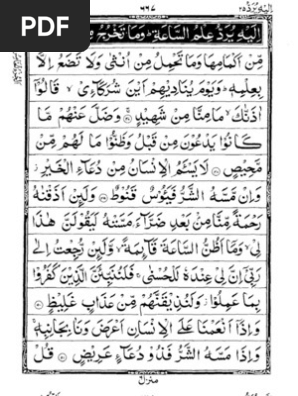 PDF
اليه يرد ٢٥
٤٦٧
اِلَيْهِ يُرَدُّ عِلْمُ السَّاعَةِ ۚ وَمَا تَخْرُجُ مِنْ
مِّنْ اَكْمَامِهَا وَمَا تَحْمِلُ مِنْ اُنْثٰى وَلَا تَضَعُ اِلَّا
بِعِلْمِهٖ ۚ وَيَوْمَ يُنَادِيْهِمْ اَيْنَ شُرَكَآءِيْ ۙ قَالُوْٓا
اٰذَنّٰكَ ۙ مَا مِنَّا مِنْ شَهِيْدٍ ۚ وَضَلَّ عَنْهُمْ مَّا
كَانُوْا يَدْعُوْنَ مِنْ قَبْلُ وَظَنُّوْا مَا لَهُمْ مِّنْ
مَّحِيْصٍ ۞ لَا يَسْـَٔمُ الْاِنْسَانُ مِنْ دُعَآءِ الْخَيْرِ ۡ
وَاِنْ مَّسَّهُ الشَّرُّ فَيَـُٔوْسٌ قَنُوْطٌ ۞ وَلَئِنْ اَذَقْنٰهُ
رَحْمَةً مِّنَّا مِنْۢ بَعْدِ ضَرَّآءَ مَسَّتْهُ لَيَقُوْلَنَّ هٰذَا
لِيْ ۙ وَمَآ اَظُنُّ السَّاعَةَ قَآئِمَةً ۙ وَّلَئِنْ رُّجِعْتُ اِلٰى
رَبِّيْٓ اِنَّ لِيْ عِنْدَهٗ لَلْحُسْنٰى ۚ فَلَنُنَبِّئَنَّ الَّذِيْنَ كَفَرُوْا
بِمَا عَمِلُوْا ۡ وَلَنُذِيْقَنَّهُمْ مِّنْ عَذَابٍ غَلِيْظٍ ۞
وَاِذَآ اَنْعَمْنَا عَلَى الْاِنْسَانِ اَعْرَضَ وَنَاٰ بِجَانِبِهٖ ۚ
وَاِذَا مَسَّهُ الشَّرُّ فَذُوْ دُعَآءٍ عَرِيْضٍ ۞ قُلْ
منزل